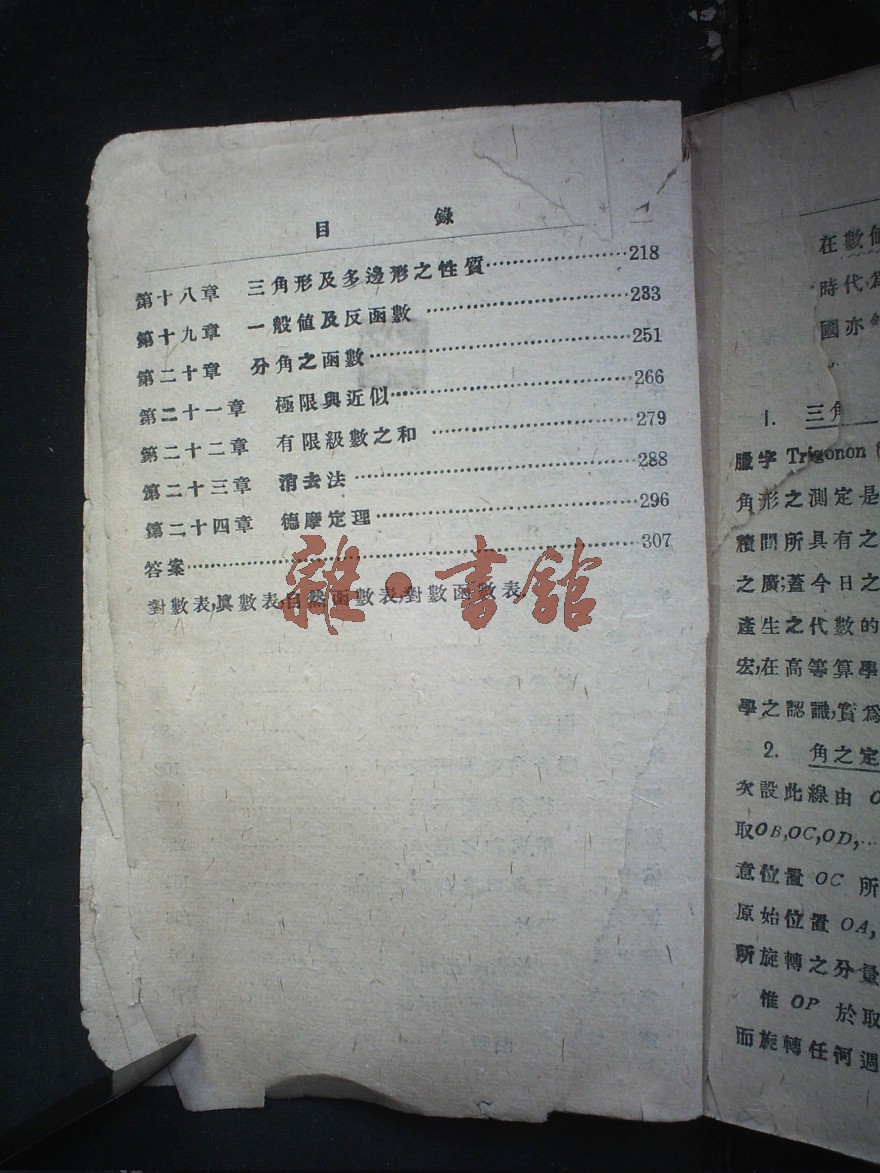 目 錄
第十八章 三角形及多邊形之性質……………………218
第十九章 一般値及反函數……………………233
第二十章 分角之函數……………………251
第二十一章 極限與近似……………………266
第二十二章 有限級數之和……………………279
第二十三章 消去法……………………288
第二十四章 德摩定理……………………296
答案……………………307
對數表,眞數表,自然函數表,對數函數表,
雜·書館
在數値
時代,爲
國亦
1. 三角
臘字 Trigonon
角形之測定是
積問所具有之
之廣;蓋今日之
產生之代數的
宏,在高等算學
學之認識,實爲
2. 角之定
次設此線由 O
取OB,OC,OD,…
意位置 OC 所
原始位置 OA,
所旋轉之分量
惟 OP 於取
而旋轉任何週